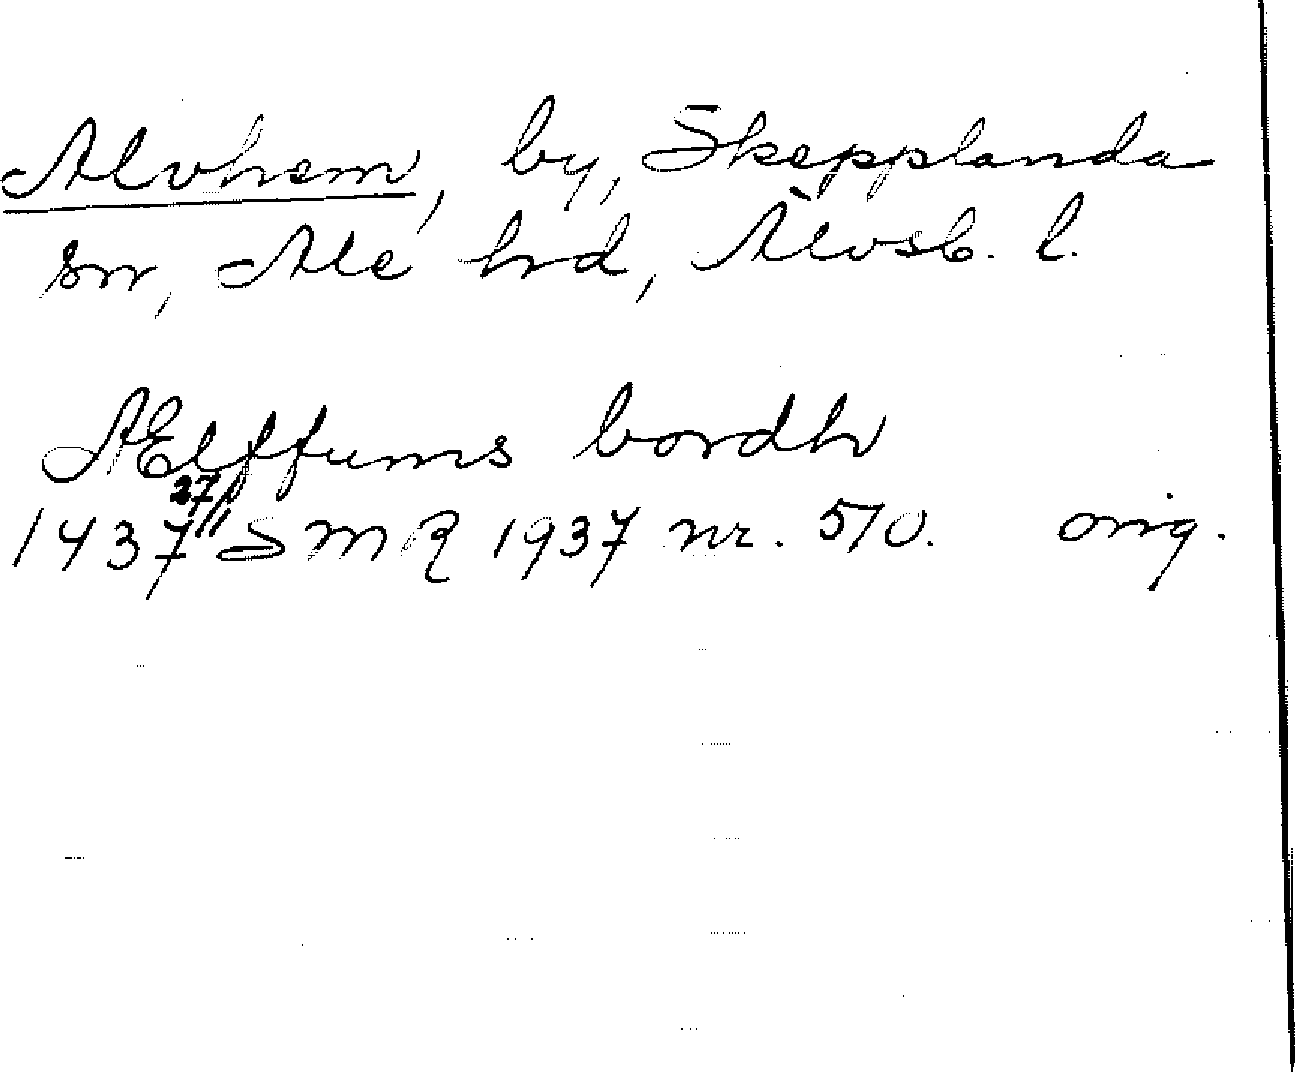 Alvhem, by, Skepplanda
sn, Ale hd, Älvsb. l.
AElffums bordh
1437 27/11 SMR 1937 nr. 510. orig.